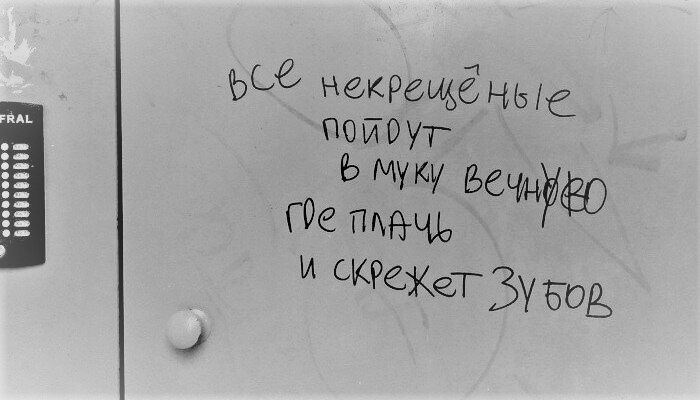 FRAL
все некрещёные
пойдут
в муку вечную
где плачь
и скрежет зубов